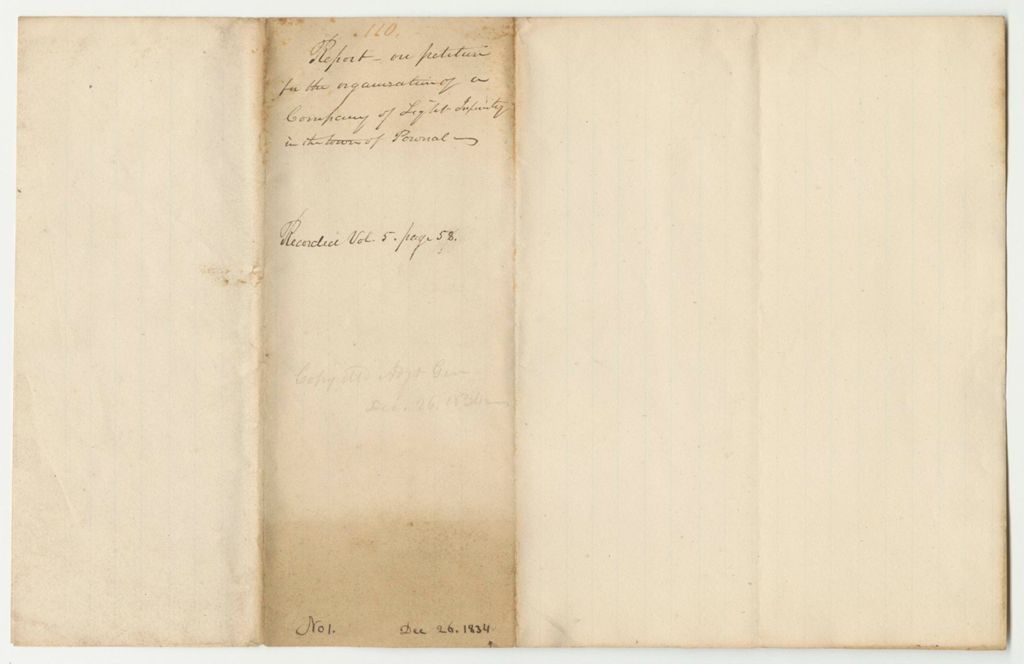 110.
Report - on petition
for the organization of a
Company of Light Infantry
in the town of Pownal
Recorded Vol. 5. page 58.
Copy Adjt Gen
Dec. 26. 1834
No 1. Dec 26. 1834